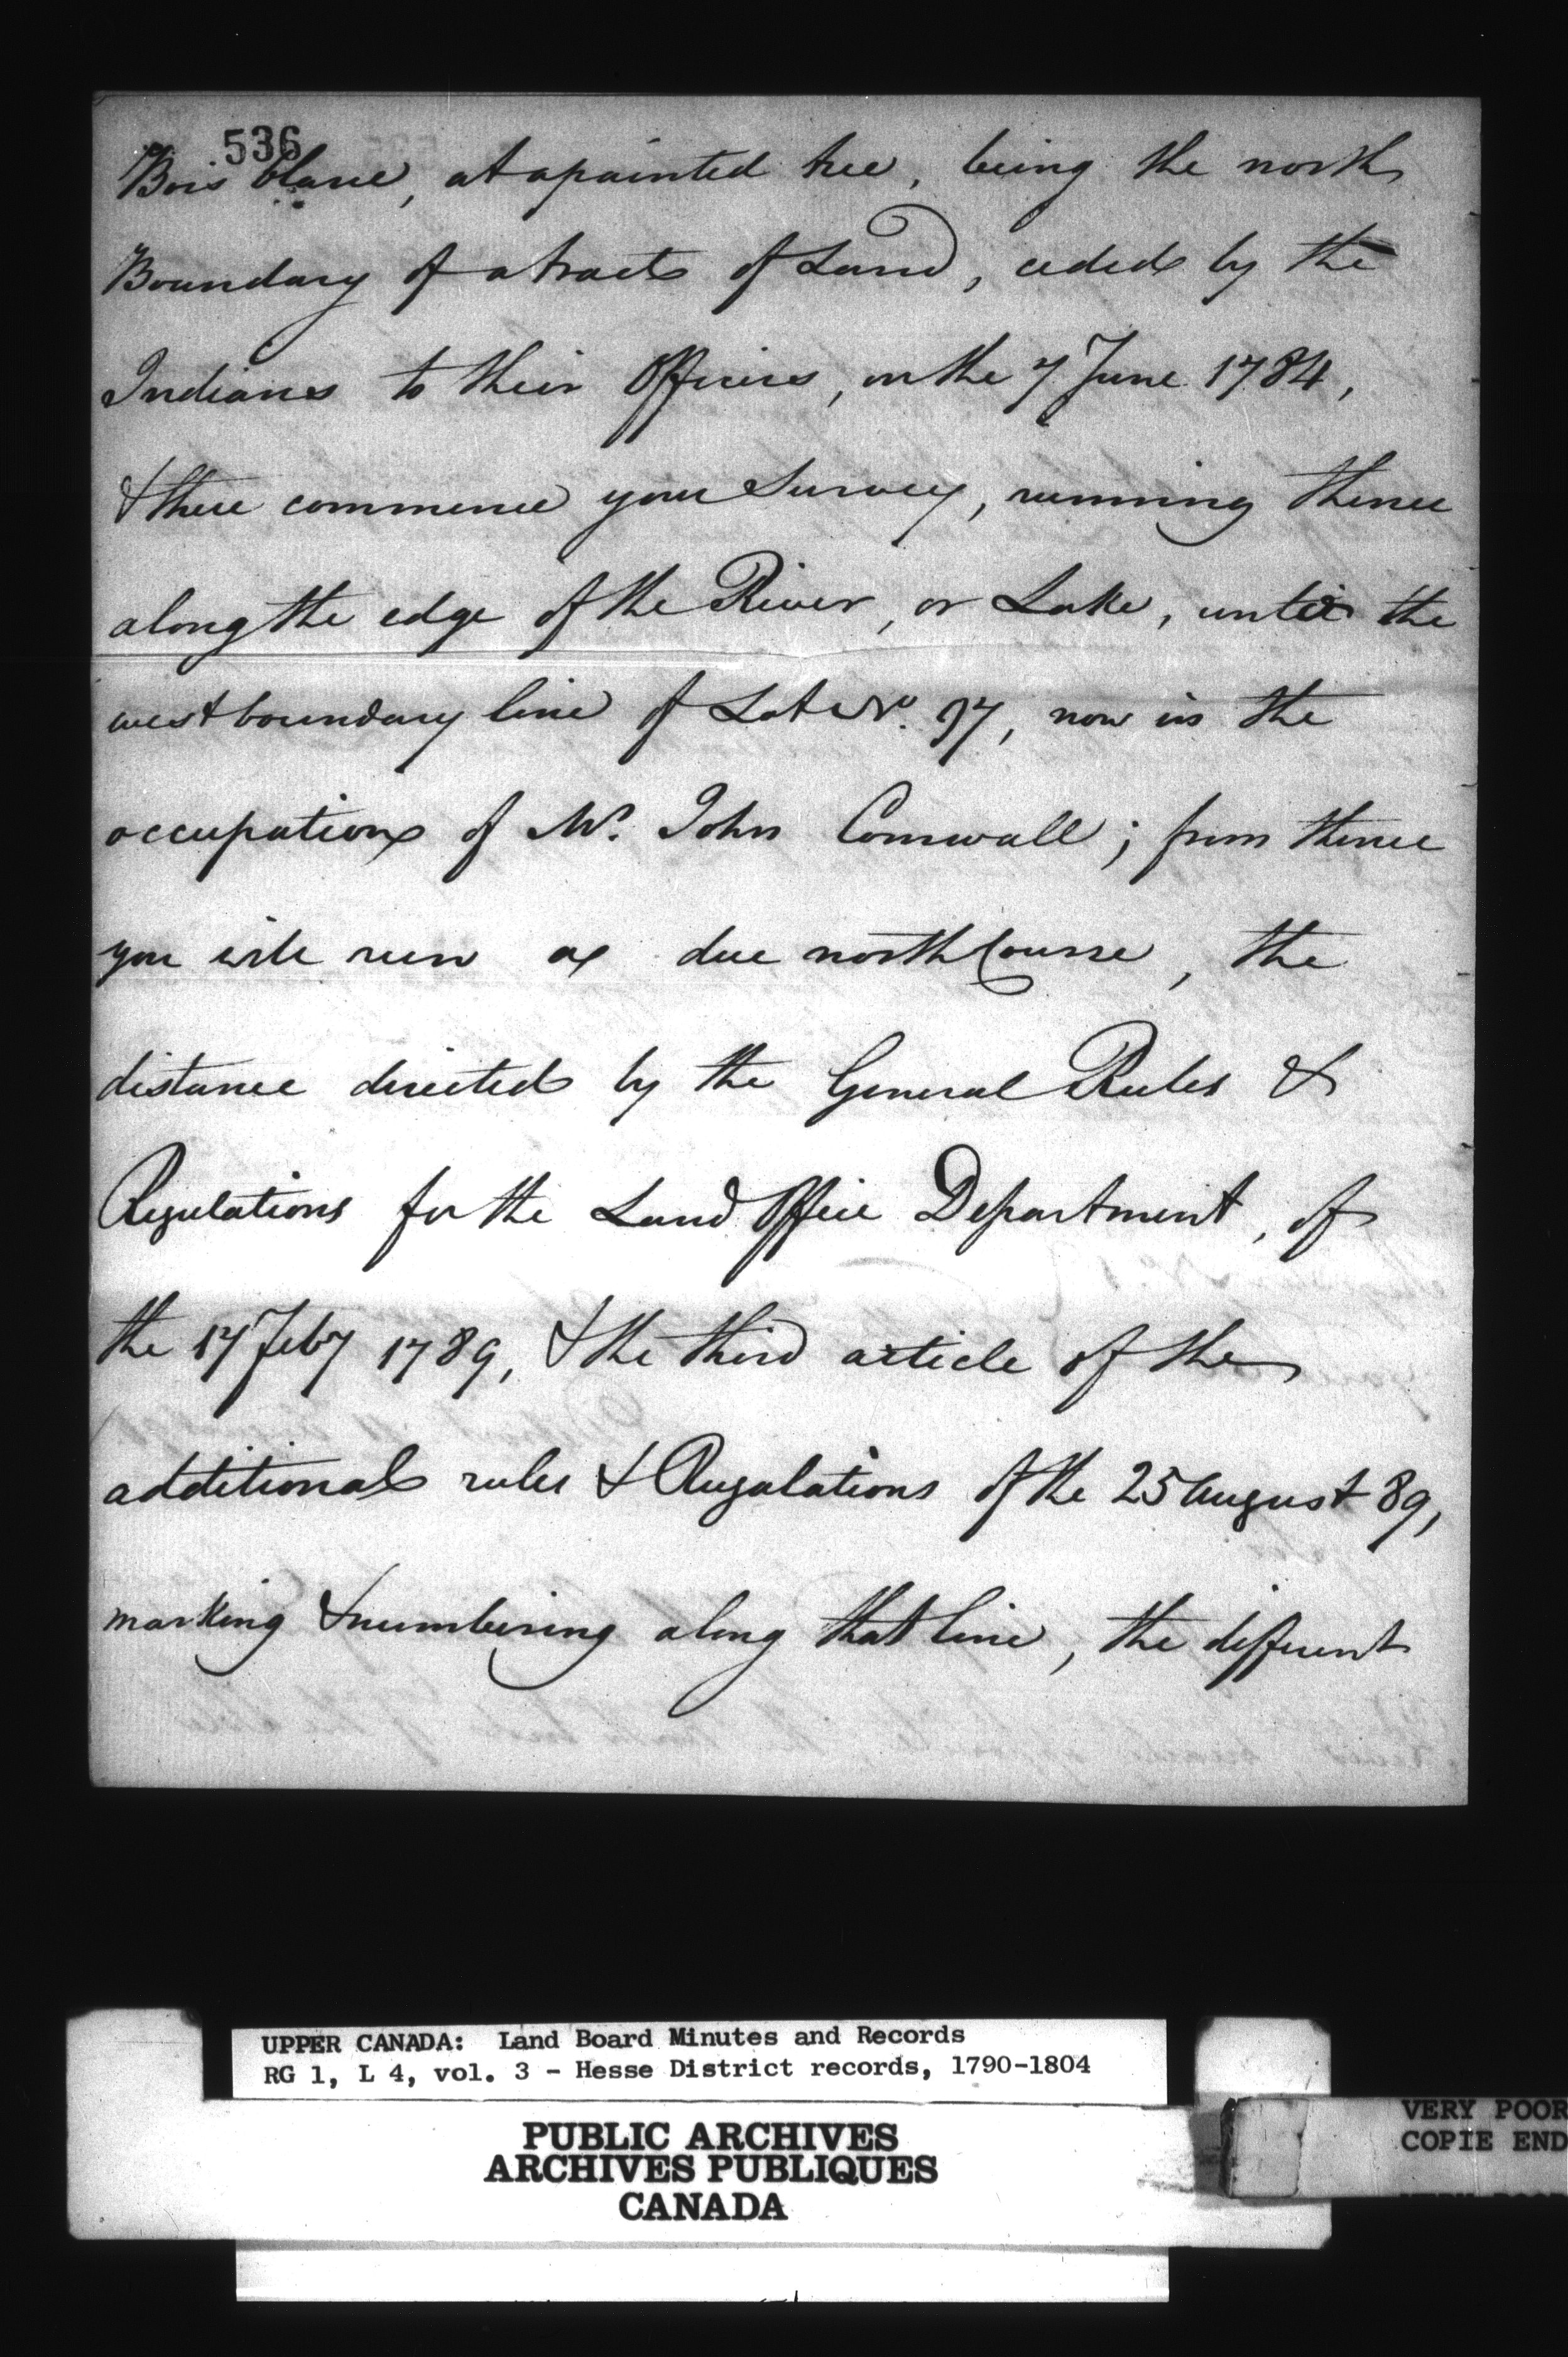 536
Bois blanc, at a painted tree, being the north
Boundary of a tract of Land, ceded by the
Indians to their Officers, on the 7 June 1784,
& there commence your Survey, running thence
along the edge of the River, or Lake, until the
west boundary line of Lot No. 97, now in the
occupation of Mr. John Cornwall; from thence
you will run a due north Course, the
distance directed by the General Rules &
Regulations for the Land Office Department, of
the 17 Feby 1789, & the third article of the
additional rules & Regulations of the 25 August 89,
marking & numbering along that line, the different
UPPER CANADA: Land Board Minutes and Records
RG 1, L 4, vol. 3 - Hesse District records, 1790-1804
PUBLIC ARCHIVES
ARCHIVES PUBLIQUES
CANADA
VERY POOR
COPIE END